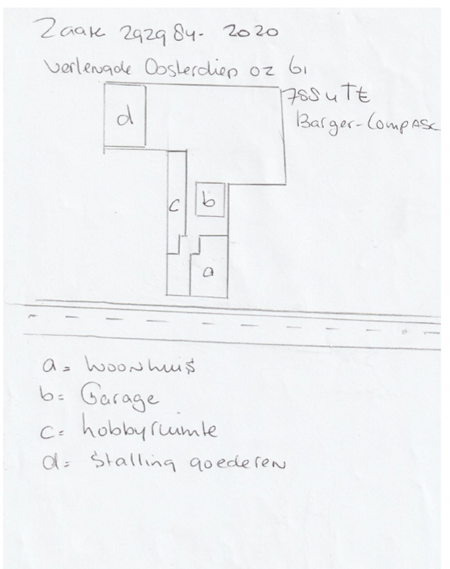 Zaak 292984-2020
Verlengde Oosterdiep OZ 61
7884TE
Barger-Compasc
d
c
b
a
a= Woonhuis
b= Garage
c= hobbyruimte
d= Stalling goederen